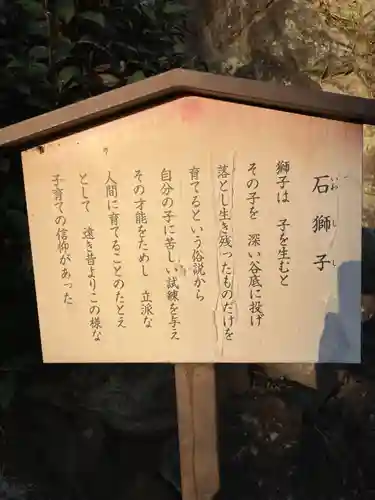 石獅子
いわ し し
獅子は 子を生むと
その子を 深い谷底に投げ
落とし生き残ったものだけを
育てるという俗説から
自分の子に苦しい試練を与え
その才能をためし 立派な
人間に育てることのたとえ
として 遠き昔よりこの様な
子育ての信仰があった